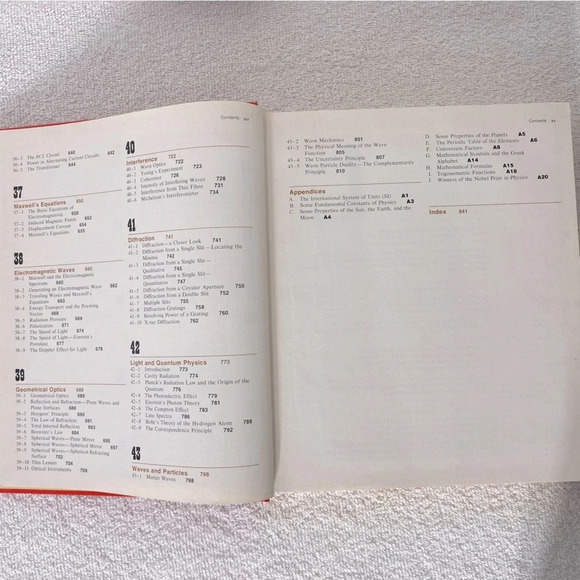 Contents
36-3 The RLC Circuit 640
36-4 Power in Alternating Current Circuits 642
36-5 The Transformer 644
37
Maxwell's Equations 650
37-1 The Basic Equations of
Electromagnetism 650
37-2 Induced Magnetic Fields 652
37-3 Displacement Current 654
37-4 Maxwell's Equations 655
38
Electromagnetic Waves 660
38-1 Maxwell and the Electromagnetic
Spectrum 660
38-2 Generating an Electromagnetic Wave 662
38-3 Traveling Waves and Maxwell's
Equations 665
38-4 Energy Transport and the Poynting
Vector 668
38-5 Radiation Pressure 669
38-6 Polarization 671
38-7 The Speed of Light 674
38-8 The Speed of Light—Einstein's
Postulate 677
38-9 The Doppler Effect for Light 678
39
Geometrical Optics 688
39-1 Geometrical Optics 688
39-2 Reflection and Refraction—Plane Waves and
Plane Surfaces 688
39-3 Huygens' Principle 690
39-4 The Law of Refraction 691
39-5 Total Internal Reflection 693
39-6 Brewster's Law 694
39-7 Spherical Waves—Plane Mirror 695
39-8 Spherical Waves—Spherical Mirror 697
39-9 Spherical Waves—Spherical Refracting
Surface 702
39-10 Thin Lenses 704
39-11 Optical Instruments 709
40
Interference 722
40-1 Wave Optics 722
40-2 Young's Experiment 723
40-3 Coherence 726
40-4 Intensity of Interfering Waves 728
40-5 Interference from Thin Films 731
40-6 Michelson's Interferometer 734
41
Diffraction 741
41-1 Diffraction—a Closer Look 741
41-2 Diffraction from a Single Slit—Locating the
Minima 742
41-3 Diffraction from a Single Slit—
Qualitative 745
41-4 Diffraction from a Single Slit—
Quantitative 747
41-5 Diffraction from a Circular Aperture 750
41-6 Diffraction from a Double Slit 752
41-7 Multiple Slits 755
41-8 Diffraction Gratings 758
41-9 Resolving Power of a Grating 760
41-10 X-ray Diffraction 762
42
Light and Quantum Physics 773
42-1 Introduction 773
42-2 Cavity Radiation 774
42-3 Planck's Radiation Law and the Origin of the
Quantum 776
42-4 The Photoelectric Effect 779
42-5 Einstein's Photon Theory 781
42-6 The Compton Effect 783
42-7 Line Spectra 786
42-8 Bohr's Theory of the Hydrogen Atom 788
42-9 The Correspondence Principle 792
43
Waves and Particles 798
43-1 Matter Waves 798
Contents
43-2 Wave Mechanics 801
43-3 The Physical Meaning of the Wave
Function 805
43-4 The Uncertainty Principle 807
43-5 Wave-Particle Duality—The Complementarity
Principle 810
Appendices
A. The International System of Units (SI) A1
B. Some Fundamental Constants of Physics A3
C. Some Properties of the Sun, the Earth, and the
Moon A4
D. Some Properties of the Planets A5
E. The Periodic Table of the Elements A6
F. Conversion Factors A8
G. Mathematical Symbols and the Greek
Alphabet A14
H. Mathematical Formulas A15
I. Trigonometric Functions A16
J. Winners of the Nobel Prize in Physics A20
Index 841